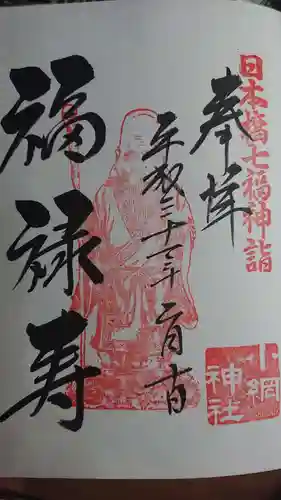 日本橋七福神詣
奉拝
平成二十三年一月吉日
福禄寿
小網
神社